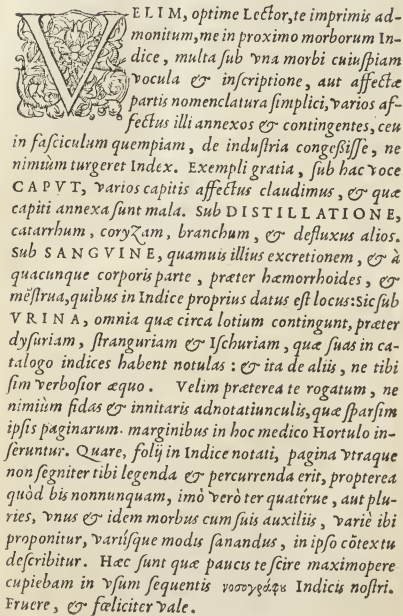 VELIM, optime Lector, te imprimis ad-
monitum, me in proximo morborum In-
dice, multa ſub vna morbi cuiuſpiam
vocula & inſcriptione, aut affectæ
partis nomenclatura ſimplici, varios af-
fectus illi annexos & contingentes, ceu
in faſciculum quempiam, de induſtria congeßiſſe, ne
nimiùm turgeret Index. Exempli gratia, ſub hac voce
CAPVT, varios capitis affectus claudimus, & quæ
capiti annexa ſunt mala. Sub DISTILLATIONE,
catarrhum, coryZam, branchum, & defluxus alios.
Sub SANGVINE, quamuis illius excretionem, & à
quacunque corporis parte, præter hæmorrhoides, &
mẽſtrua, quibus in Indice proprius datus eſt locus: Sic ſub
VRINA, omnia quæ circa lotium contingunt, præter
dyſuriam, ſtranguriam & Iſchuriam, quæ ſuas in ca-
talogo indices habent notulas : & ita de aliis, ne tibi
ſim verboſior æquo. Velim præterea te rogatum, ne
nimiùm fidas & innitaris adnotatiunculis, quæ ſparſim
ipſis paginarum marginibus in hoc medico Hortulo in-
ſeruntur. Quare, folij in Indice notati, pagina vtraque
non ſegniter tibi legenda & percurrenda erit, propterea
quòd bis nonnunquam, imò verò ter quatérue, aut plu-
ries, vnus & idem morbus cum ſuis auxiliis, variè ibi
proponitur, variíſque modis ſanandus, in ipſo cõtextu
deſcribitur. Hæc ſunt quæ paucis te ſcire maximopere
cupiebam in vſum ſequentis νοσογράφȣ Indicis noſtri.
Fruere, & fœliciter vale.